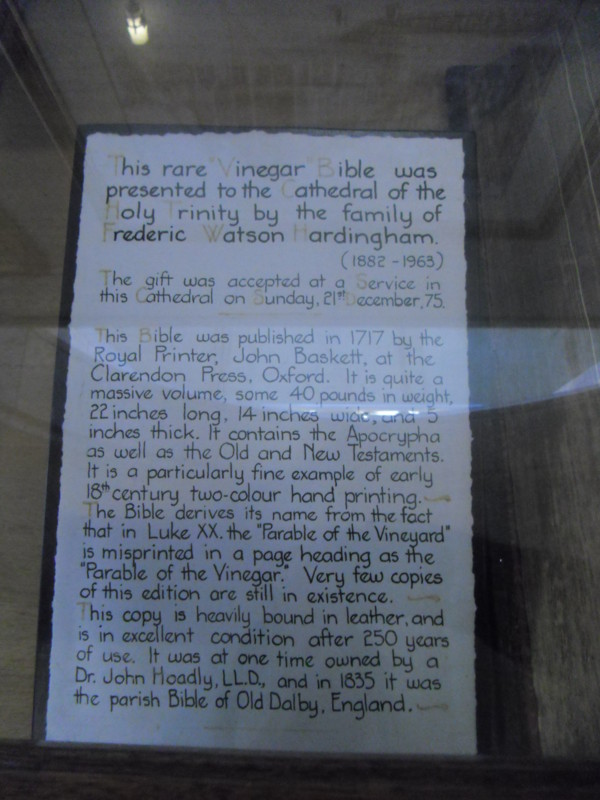 This rare "Vinegar" Bible was
presented to the Cathedral of the
Holy Trinity by the family of
Frederic Watson Hardingham.
(1882 - 1963)
The gift was accepted at a Service in
this Cathedral on Sunday, 21st December, 75.
This Bible was published in 1717 by the
Royal Printer, John Baskett, at the
Clarendon Press, Oxford. It is quite a
massive volume, some 40 pounds in weight,
22 inches long, 14 inches wide, and 5
inches thick. It contains the Apocrypha
as well as the Old and New Testaments.
It is a particularly fine example of early
18th century two-colour hand printing.
The Bible derives its name from the fact
that in Luke XX. the "Parable of the Vineyard"
is misprinted in a page heading as the
"Parable of the Vinegar." Very few copies
of this edition are still in existence.
This copy is heavily bound in leather, and
is in excellent condition after 250 years
of use. It was at one time owned by a
Dr. John Hoadly, LL.D., and in 1835 it was
the parish Bible of Old Dalby, England.